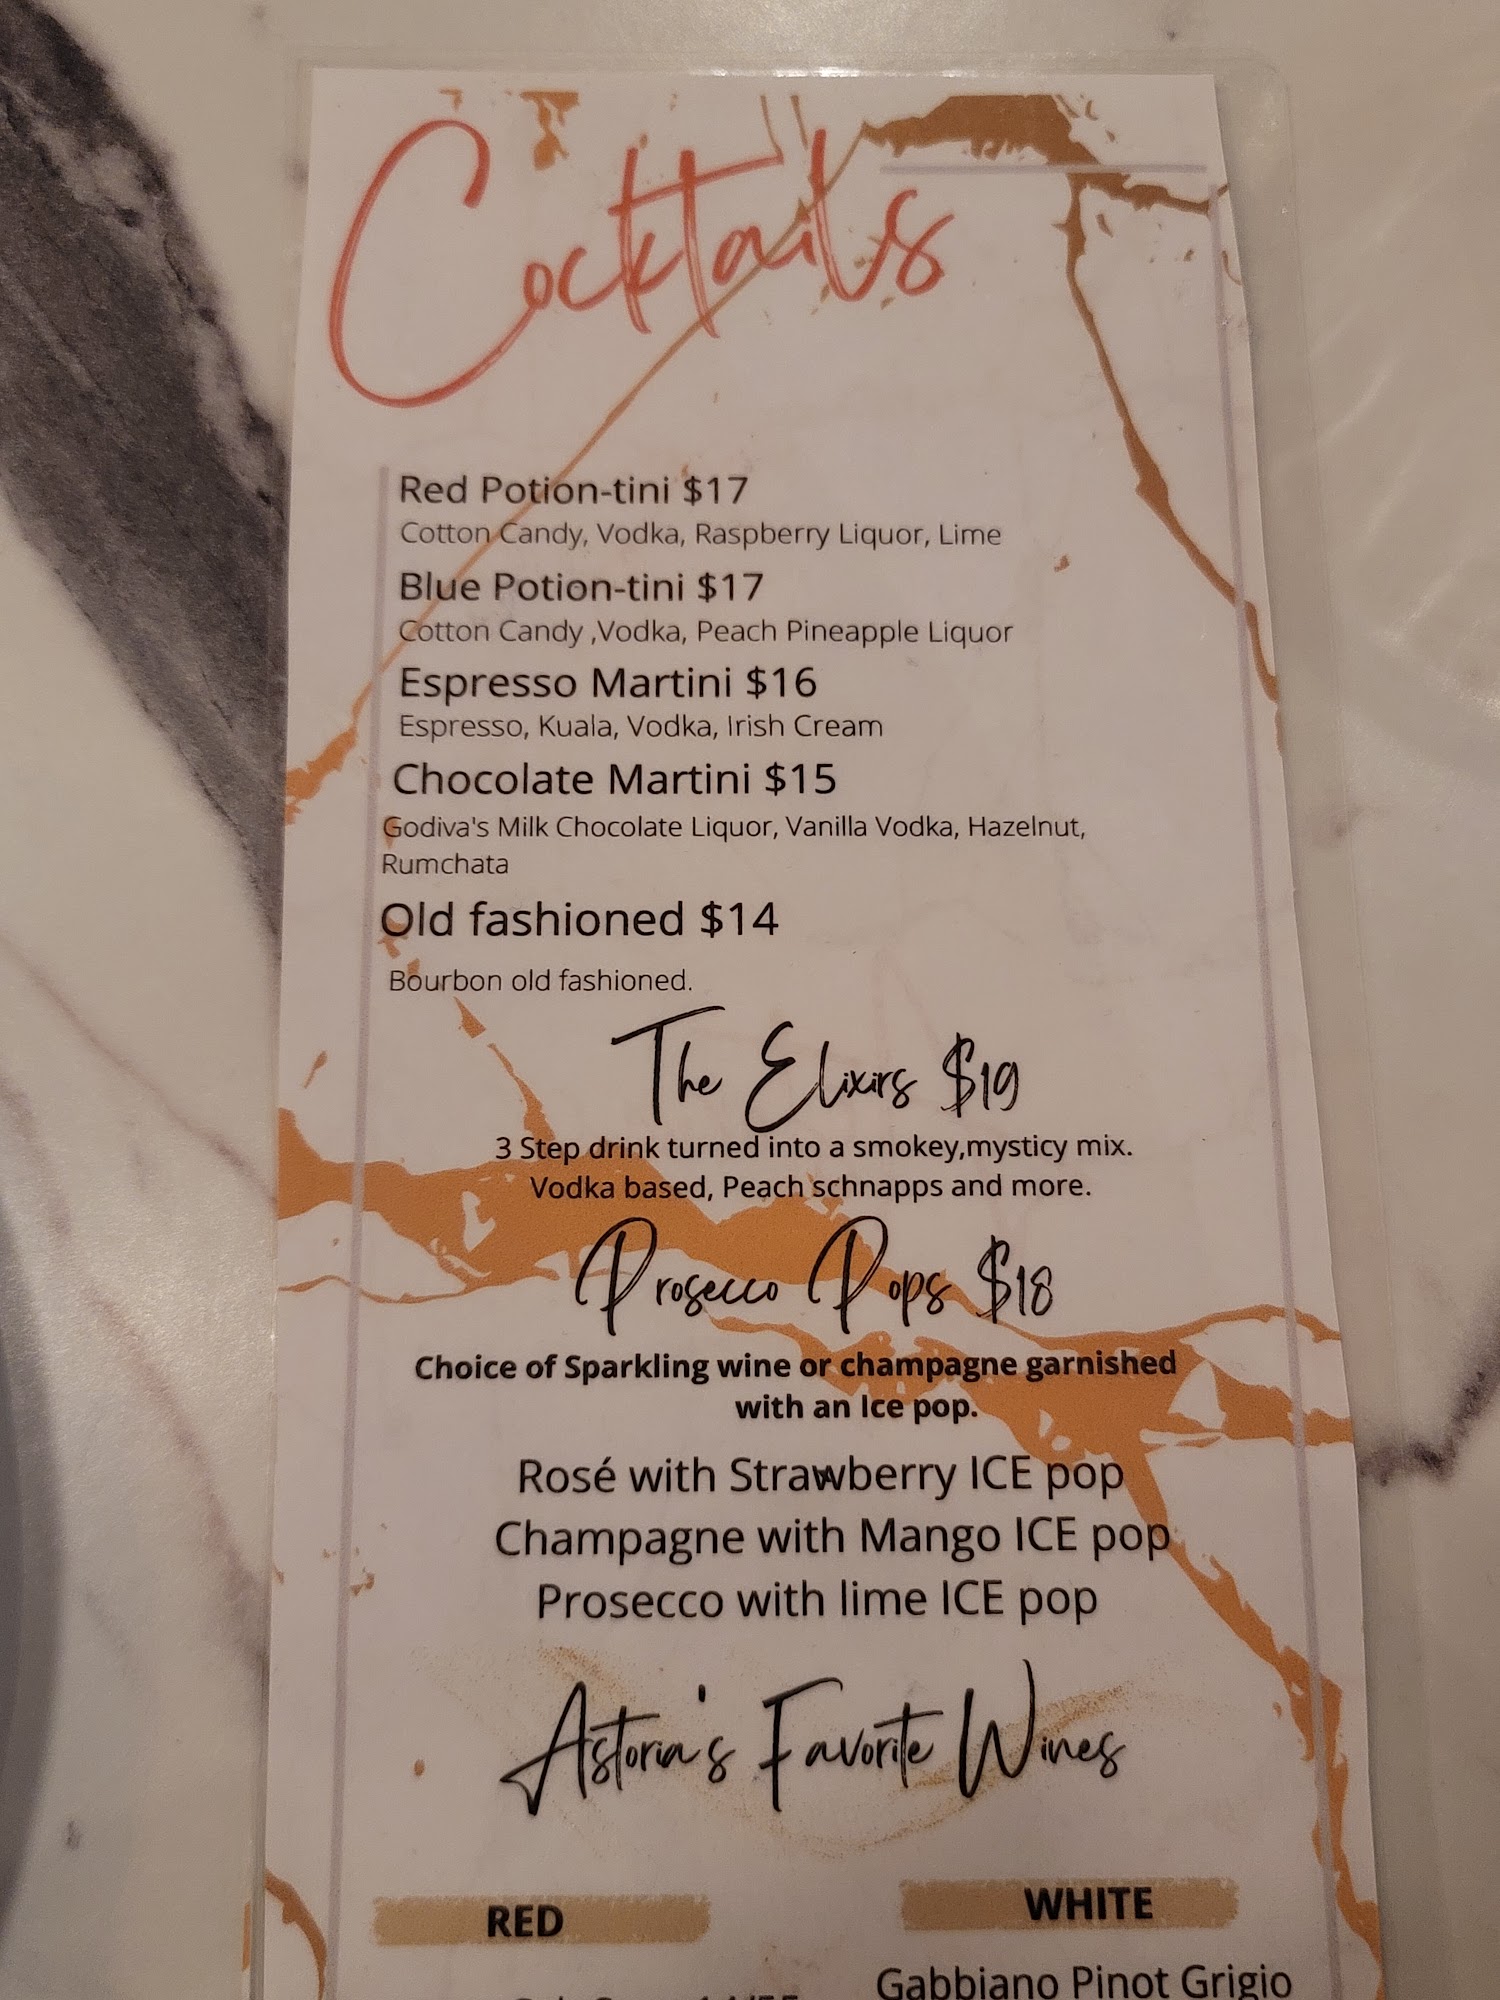 Cocktails
Red Potion-tini $17
Cotton Candy, Vodka, Raspberry Liquor, Lime
Blue Potion-tini $17
Cotton Candy ,Vodka, Peach Pineapple Liquor
Espresso Martini $16
Espresso, Kuala, Vodka, Irish Cream
Chocolate Martini $15
Godiva's Milk Chocolate Liquor, Vanilla Vodka, Hazelnut,
Rumchata
Old fashioned $14
Bourbon old fashioned.
The Elixirs $19
3 Step drink turned into a smokey,mysticy mix.
Vodka based, Peach schnapps and more.
Prosecco Pops $18
Choice of Sparkling wine or champagne garnished
with an Ice pop.
Rosé with Strawberry ICE pop
Champagne with Mango ICE pop
Prosecco with lime ICE pop
Astoria's Favorite Wines
RED
WHITE
Gabbiano Pinot Grigio